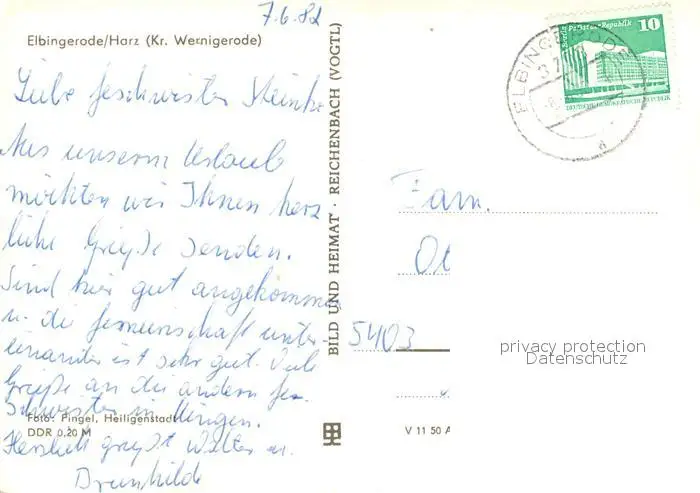 7.6.82
Elbingerode/Harz (Kr. Wernigerode)
Liebe Geschwister
Aus unserm Urlaub
möchten wir Ihnen herz
liche Grüße senden.
Sind hier gut angekommen
u. die Gemeinschaft unter-
einander ist sehr gut. Viele
Grüße an die andern Ge-
schwister in
Foto: Pingel, Heiligenstadt
DDR 0,20 M
Herzlich grüßt Walter u.
Brunhilde
BILD UND HEIMAT · REICHENBACH (VOGTL)
V 11 50 A
Berlin Palast der Republik 10
DEUTSCHE DEMOKRATISCHE REPUBLIK
ELBINGERODE
Fam.
Ot
5403
privacy protection
Datenschutz